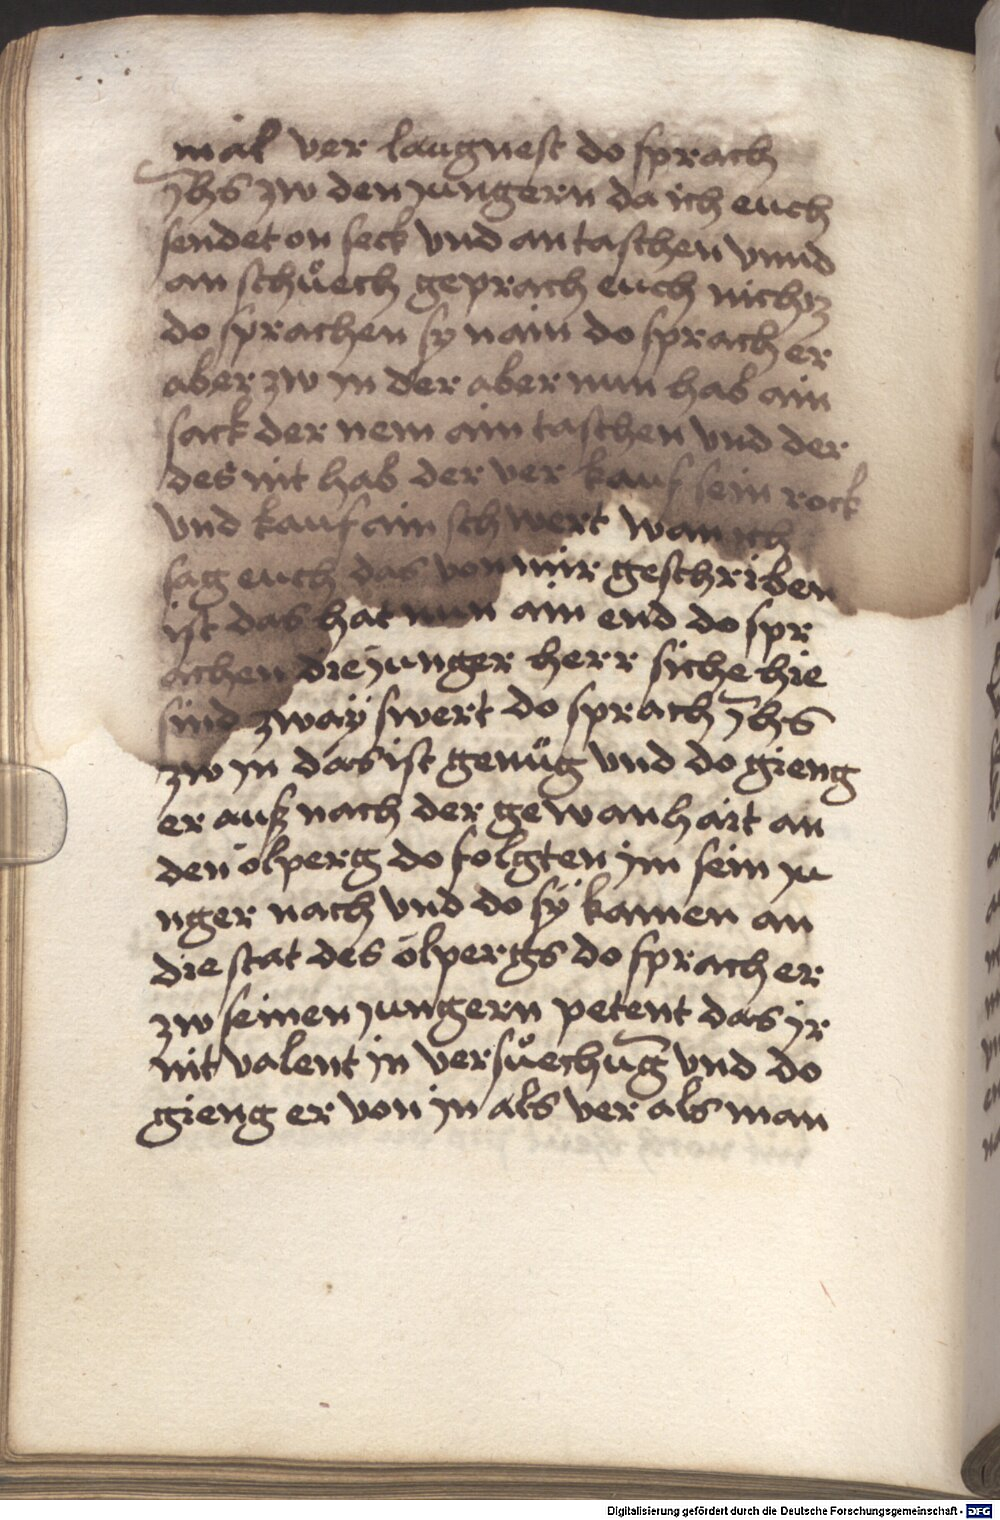 mäl ver laugnest do sprach
Jhs zw den jungern da ich euch
sendet on seck vnd an taschen vnnd
an schůech geprach euch nichtz
do sprachen sy nain do sprach er
aber zw jn der aber nun hab ain
sack der nem ain taschen vnd der
des nit hab der ver kauf sein rock
vnd kauf ain schwert wan ich
sag euch das von mir geschriben
ist das hat nun ain end do spr
achen die junger herr siche hie
sind zwaÿ swert do sprach Jhs
zw jn das ist genůg vnd do gieng
er auß nach der gewanhait an
den ölperg do folgten jm sein ju
nger nach vnd do sÿ kamen an
die stat des ölpergs do sprach er
zw seinen jungern petent das jr
nit valent jn versůechūg vnd do
gieng er von jn als ver als man
Digitalisierung gefördert durch die Deutsche Forschungsgemeinschaft - DFG